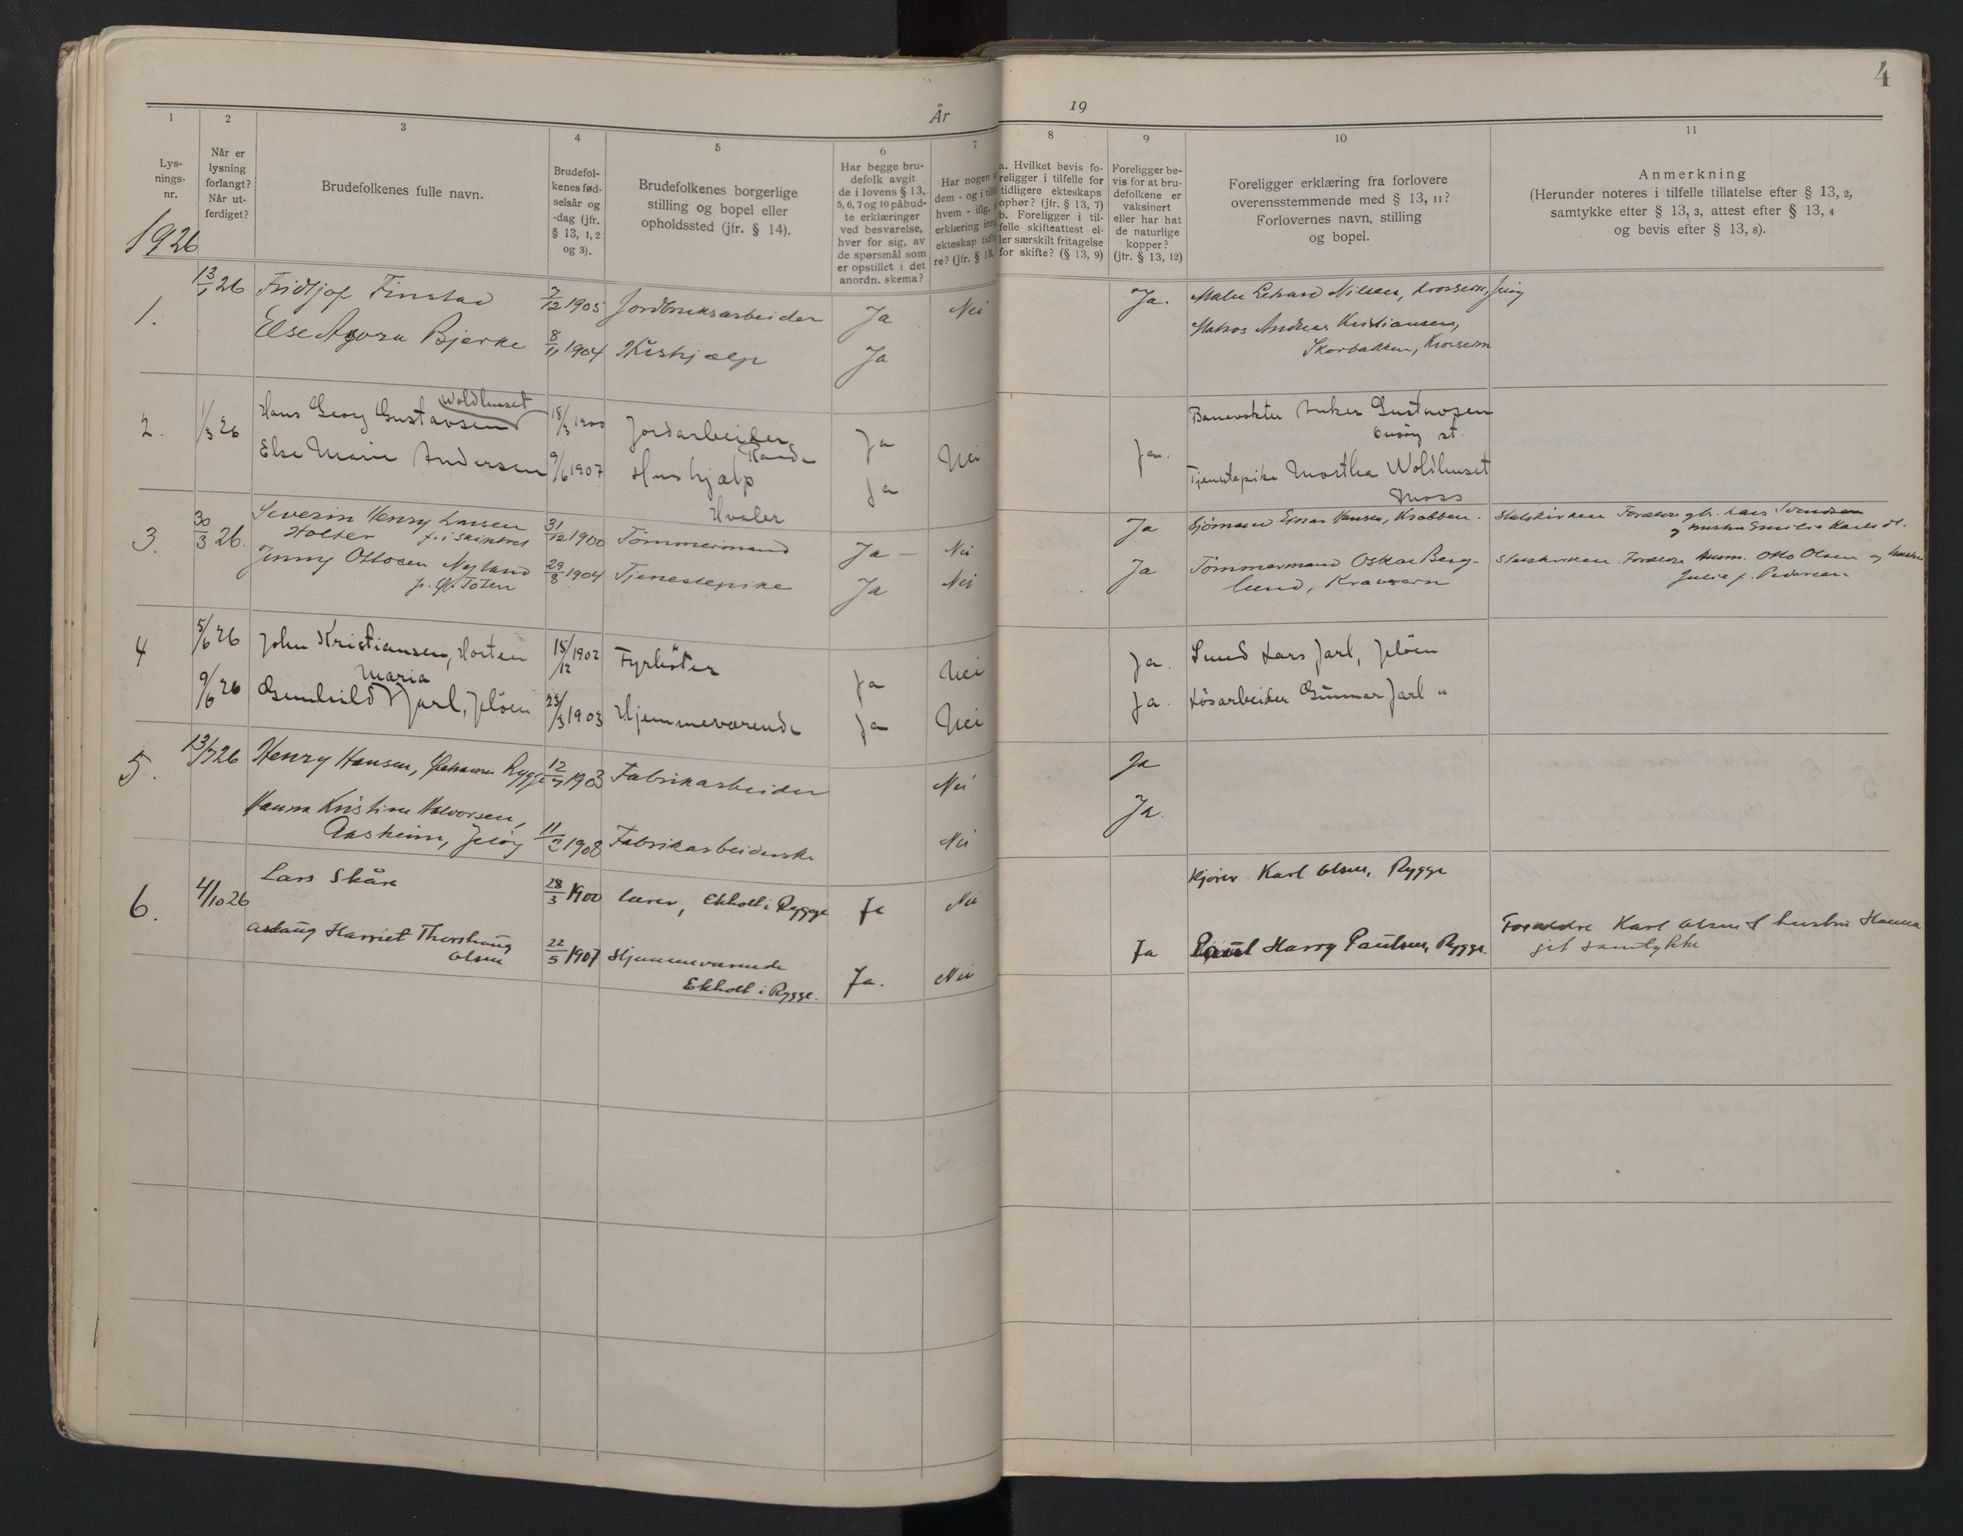 4
År 19
1 2 3 4 5 6 7 8 9 10 11
Lysningsnr.
Når er lysning forlangt? Når utferdiget?
Brudefolkenes fulle navn.
Brudefolkenes fødselsår og -dag (jfr. § 13, 1, 2 og 3).
Brudefolkenes borgerlige stilling og bopel eller opholdssted (jfr. § 14).
Har begge brudefolk avgit de i lovens § 13, 5, 6, 7 og 10 påbudte erklæringer ved besvarelse, hver for sig, av de spørsmål som er opstillet i det anordn. skema?
Har nogen dem - og i hvem - iflg. erklæring ekteskap re? (jfr. § 13,
a. Hvilket bevis foreligger i tilfelle for tidligere ekteskaps ophør? (jfr. § 13, 7) b. Foreligger i tilfelle skifteattest eller særskilt fritagelse for skifte? (§ 13, 9)
Foreligger bevis for at brudefolkene er vaksinert eller har hat de naturlige kopper? (jfr. § 13, 12)
Foreligger erklæring fra forlovere overensstemmende med § 13, 11? Forlovernes navn, stilling og bopel.
Anmerkning
(Herunder noteres i tilfelle tillatelse efter § 13, 2, samtykke efter § 13, 3, attest efter § 13, 4 og bevis efter § 13, 8).
1926
1. 13/1 26 Fridtjof Finstad 7/12 1905 Jordbruksarbeider Ja Nei Ja. Nilsen,
Else Bjerke 8/11 1904 Ja Matros Andreas Kristiansen,
Woldhuset
2. 1/3 26 Hans Georg Gustavsen 18/3 1900 Jordarbeider Ja Banevokter Anker Gustavsen
Raade st.
Else Marie Andersen 9/6 1907 Hushjælp Ja Nei Ja. Tjenestepike Martha Woldhuset
Hvaler Moss
3. 30/3 26. Severin Henry Larsen 31/12 1900 Tømmermand Ja — Nei Ja Hansen, Krabben. Statskirken Foreldre Lars Svendsen
Holter og hustru Emilie
Jenny Ottosen Nyland 29/8 1904 Tjenestepike Ja Nei Ja Tømmermand Oskar Berg- Statskirken Foreldre Otto Olsen og hustru
Toten lund, Julie f. Pedersen
4 5/6 26 John Kristiansen, Horten 15/12 1902 Fyrbøter Ja Nei Ja. Smed Lars Jarl, Jeløen
Maria
9/6 26 Gunhild Jarl, Jeløen 23/3 1903 Hjemmeværende Ja Nei Ja. Løsarbeider Gunnar Jarl "
5. 13/7 26 Henry Hansen, Rygge 12/7 1903 Fabrikarbeider Nei Ja
Hanna Kristine Halvorsen,
Aasheim, Jeløy 11/2 1908 Fabrikarbeiderske Nei Ja.
6. 4/10 26 Lars Skåre 28/3 1900 lærer, Ekholt i Rygge Ja Nei Kjører Karl Olsen, Rygge
Aslaug Harriet Thorshaug 22/5 1907 Hjemmeværende Ja Harry Paulsen, Rygge. Foreldre Karl Olsen & hustru Hanna
Olsen Ekholt i Rygge. Ja. Nei git samtykke